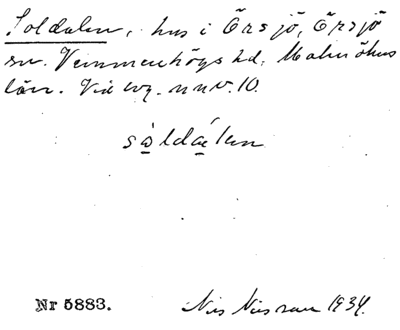 Soldalen, hus i Örsjö, Örsjö
sn. Vemmenhögs hd. Malmöhus
län. Vid vg. n nv. 10.
såldálen
Nr 5883.
Nils Nilsson 1934.